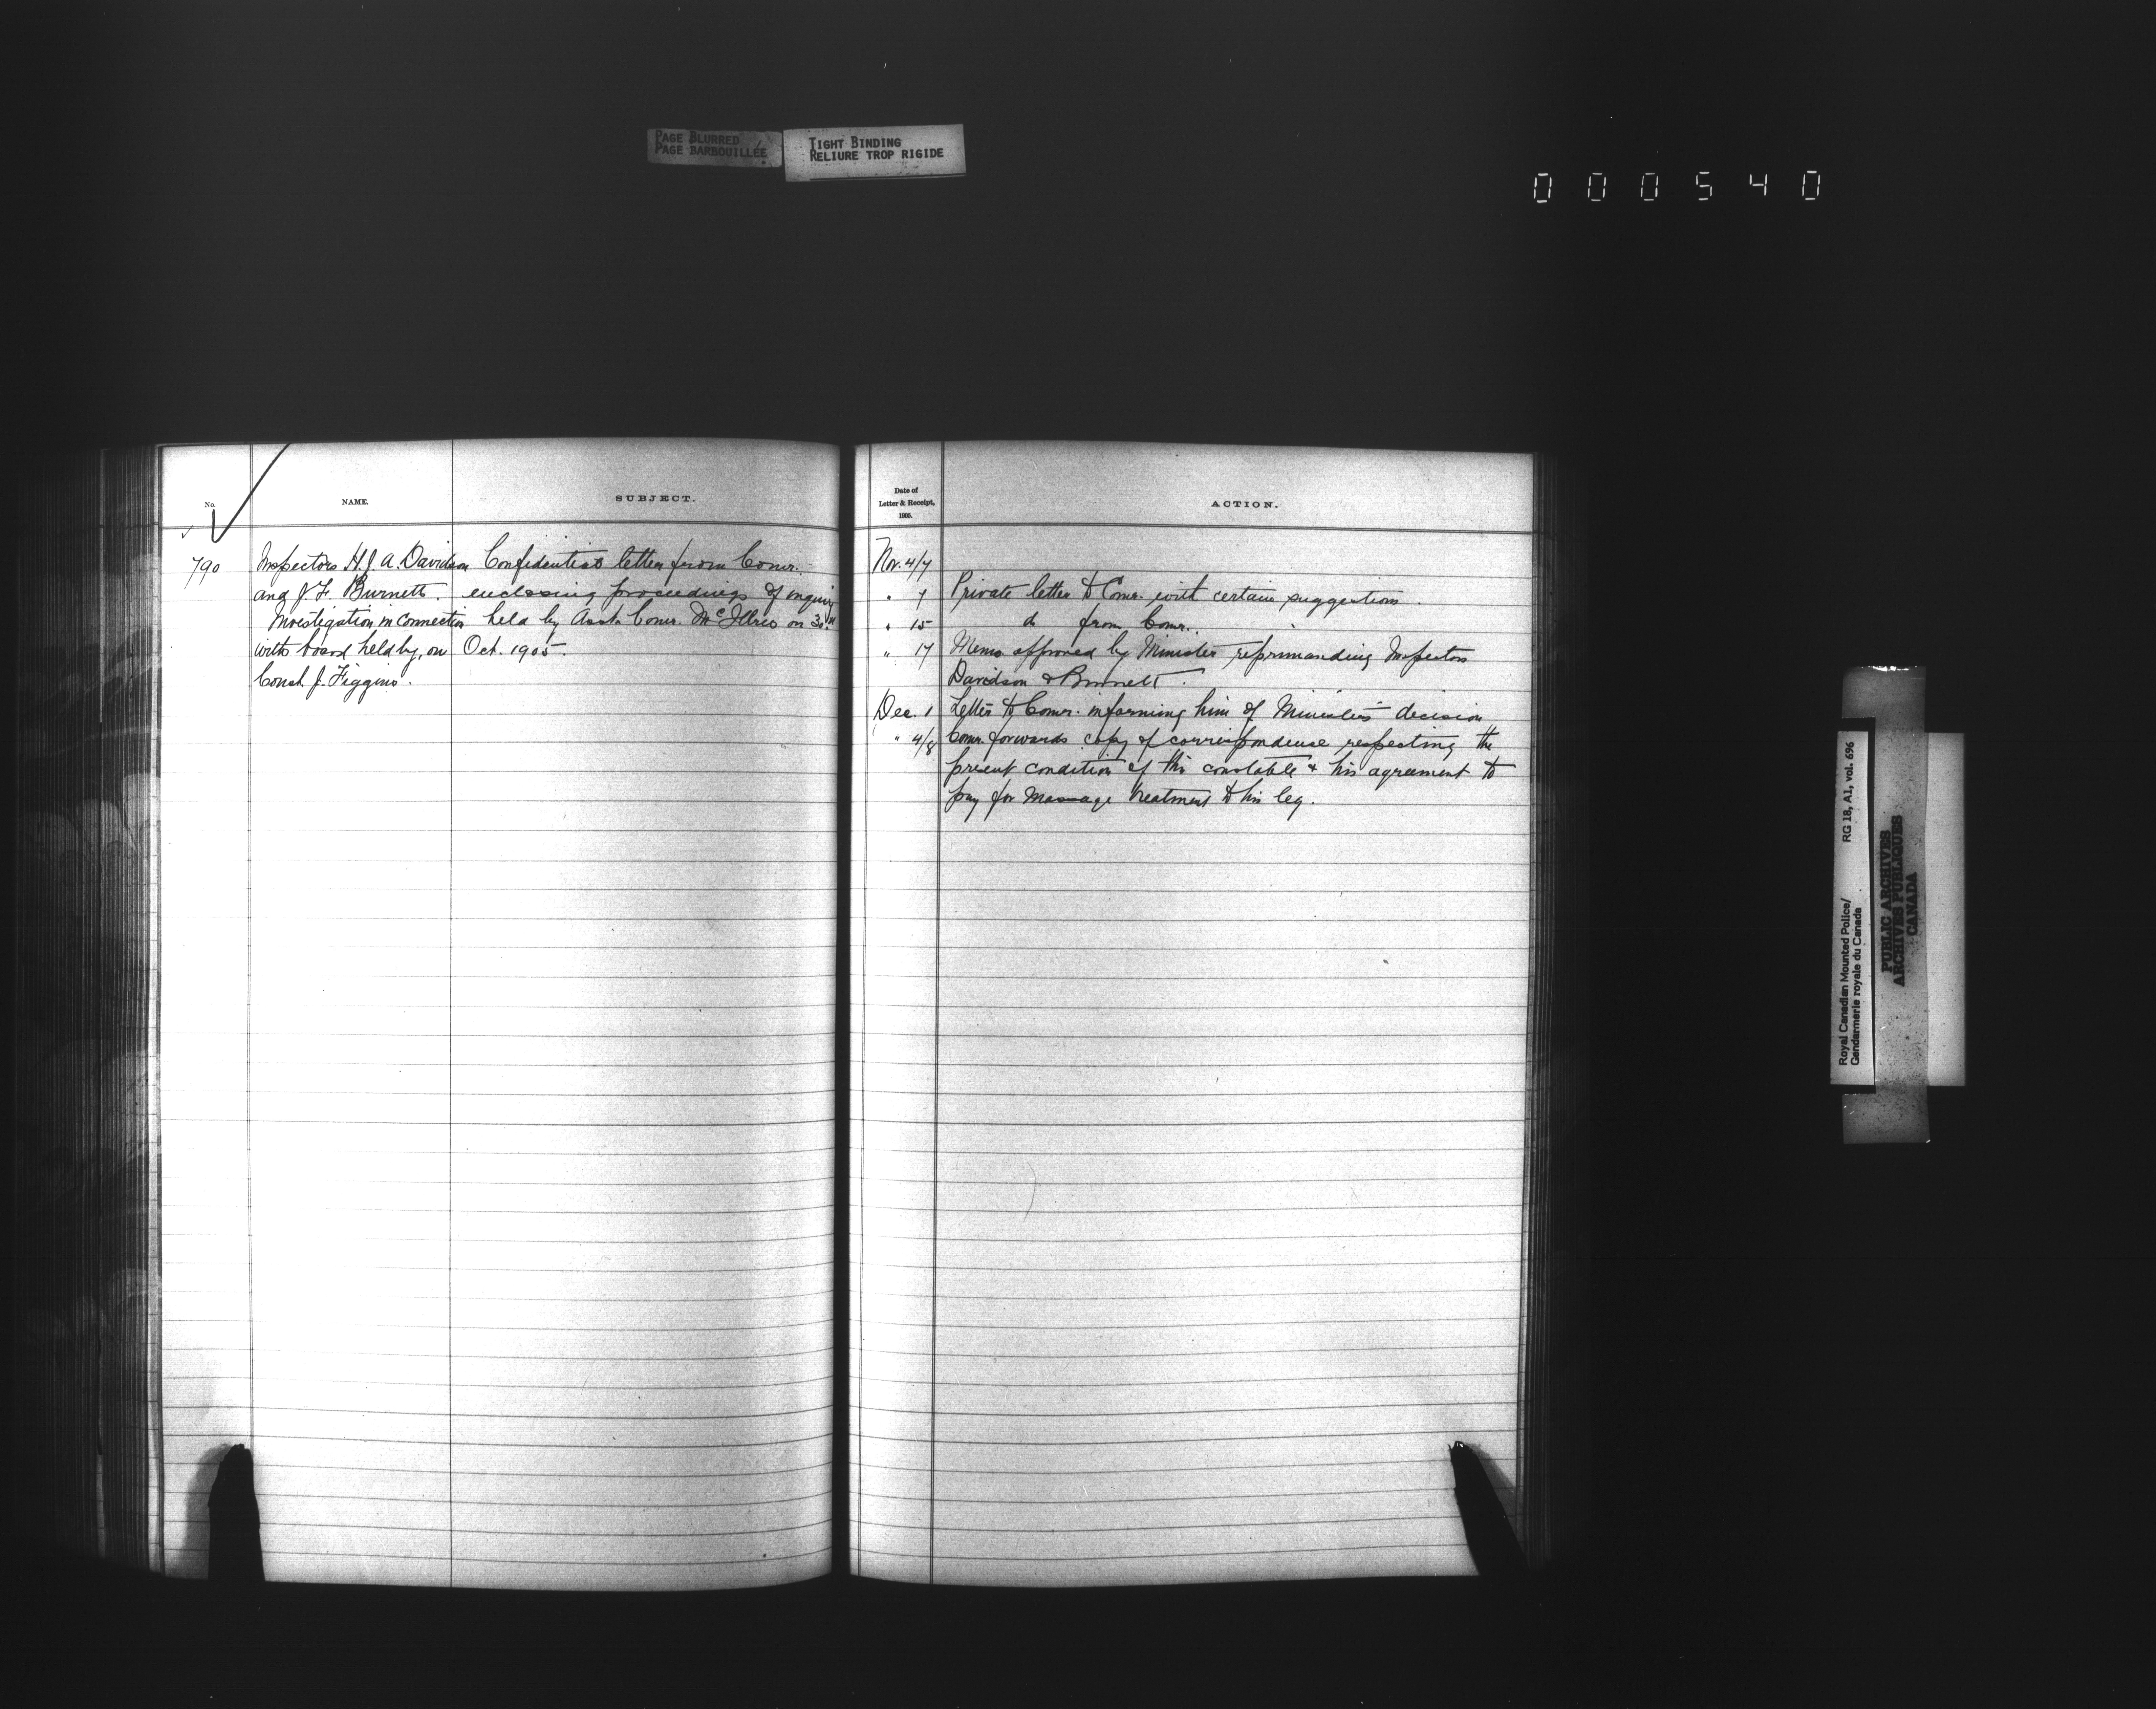 PAGE BLURRED
PAGE BARBOUILLÉE
TIGHT BINDING
RELIURE TROP RIGIDE
000540
No.
NAME.
SUBJECT.
790
Inspectors H.J.A. Davidson
and J.F. Burnett.
Investigation in connection
with board held by, on
Const. J. Figgins.
Confidential letter from Comr.
enclosing proceedings of inquiry
held by Asst. Comr. McIllree on 30th
Oct. 1905.
Date of
Letter & Receipt,
1905.
ACTION.
Nov. 4/7
" 7 Private letter to Comr. with certain suggestions.
" 15 do from Comr.
" 17 Memo approved by Minister reprimanding Inspectors
Davidson & Burnett.
Dec. 1 Letter to Comr. informing him of Minister's decision
" 4/8 Comr. forwards copy of correspondence respecting the
present condition of this constable & his agreement to
pay for massage treatment to his leg.
Royal Canadian Mounted Police/ RG 18, A1, vol. 696
Gendarmerie royale du Canada
PUBLIC ARCHIVES
ARCHIVES PUBLIQUES
CANADA